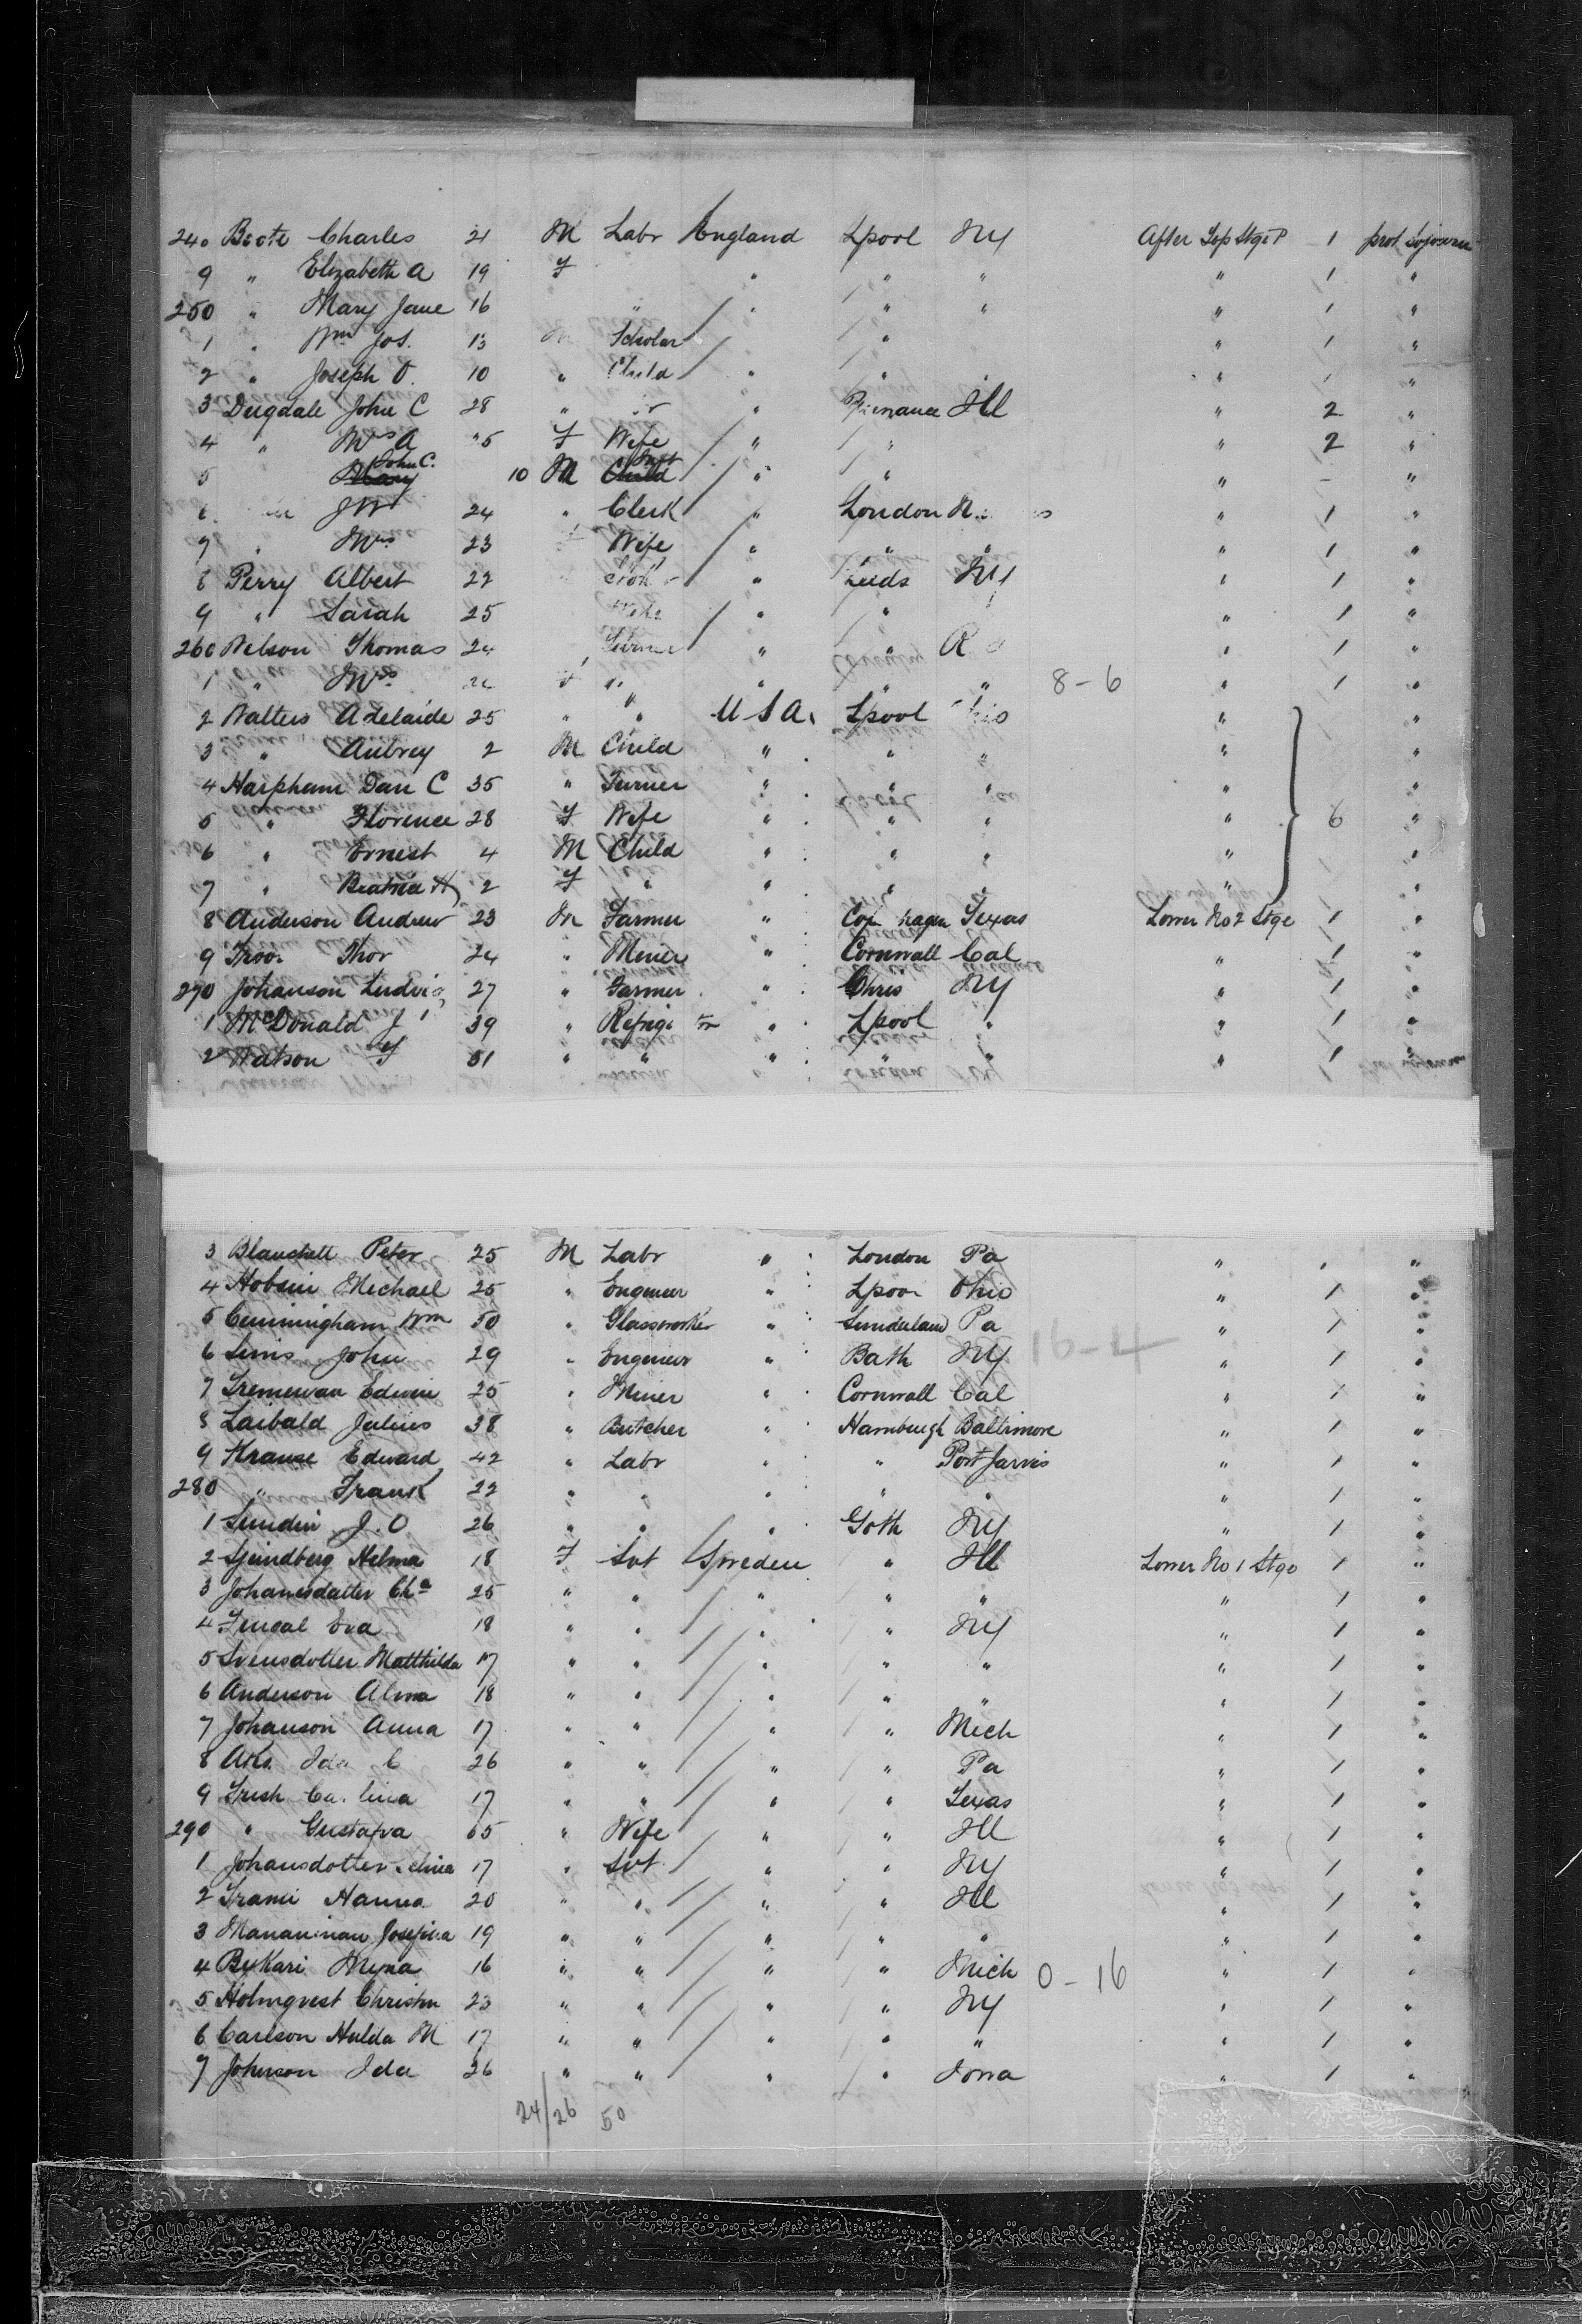 240 Boote Charles 21 M Labr England Lpool NY After Sep Stge P 1 prot sojourn
9 " Elizabeth A 19 F " " " " 1 "
250 " Mary Jane 16 " " " " " 1 "
1 " Wm Jos. 13 M Scholar " " 1 "
2 " Joseph O. 10 " Child " " " "
3 Dugdale John C 28 " " Ill " 2 "
4 " Mrs A F Wife " " " 2 "
5 John C. 10 M Inft " " " - "
6 JW 24 " Clerk " London " 1 "
7 " Mrs 23 Wife " " " " 1 "
8 Perry Albert 22 " Leeds NY " 1 "
9 " Sarah 25 Wife " " " 1 "
260 Nelson Thomas 24 " " " 1 "
1 " Mrs " " " " 8-6 " 1 "
2 Walters Adelaide 25 " " U S A. Lpool "
3 " Aubrey 2 M Child " " " " "
4 Harpham Dan C 35 " Turner " " " " "
5 " Florence 28 F Wife " " " " 6 "
6 " Ernest 4 M Child " " " " "
7 " Beatrice H 2 F " " " " " "
8 Anderson Andrew 23 M Farmer " Texas Lower No 2 Stge 1 "
9 Thor 24 " Miner " Cornwall Cal " 1 "
270 Johanson Ludvig 27 " Farmer " Chris NY " 1 "
1 McDonald J 39 " " Lpool " " 1 "
2 Watson " " " " " " 1 "
3 Blanchett Peter 25 M Labr " London Pa " "
4 Michael 25 " Engineer " Lpool Ohio " 1 "
5 Cunningham Wm 50 " Glassworker " Sunderland Pa " 1 "
6 Sims John 29 " Engineer " Bath NY 16-4 " 1 "
7 Tremewan Edwin 25 " Miner " Cornwall Cal " 1 "
8 Laibald Julius 38 " Butcher " Hamburgh Baltimore " 1 "
9 Krause Edward 42 " Labr " " Port Jarvis " 1 "
280 " Frank 22 " " " " " " 1 "
1 Sundin J. O 26 " " " Goth NY " 1 "
2 Helma 18 F Svt Sweden " Ill Lower No 1 Stge 1 "
3 Johanesdatter Cha 25 " " " " " " 1 "
4 Eva 18 " " " " NY " 1 "
5 Svensdotter Matthilda 17 " " " " " " 1 "
6 Anderson Alma 18 " " " " " " 1 "
7 Johanson Anna 17 " " " " Mich " 1 "
8 Ida C 26 " " " " Pa " 1 "
9 Frish 17 " " " " Texas " 1 "
290 " Gustafva 65 " Wife " " Ill " 1 "
1 Johansdotter 17 " Svt " " NY " 1 "
2 Hanna 20 " " " " Ill " 1 "
3 Josefina 19 " " " " " " 1 "
4 16 " " " " Mich 0-16 " 1 "
5 Holmqvist Christin 23 " " " " NY " 1 "
6 Carlson Hulda M 17 " " " " " " 1 "
7 Johnson Ida 26 " " " " Iowa " 1 "
24/26 50